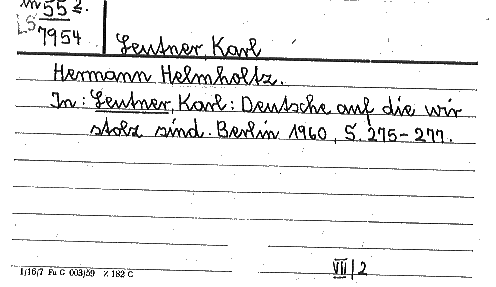 m 55 2.
LS 7954
Leutner, Karl
Hermann Helmholtz.
In: Leutner, Karl: Deutsche auf die wir
stolz sind. Berlin 1960, S. 275-277.
1/16/7 Fu G 003/59 X 182 C
VII/2